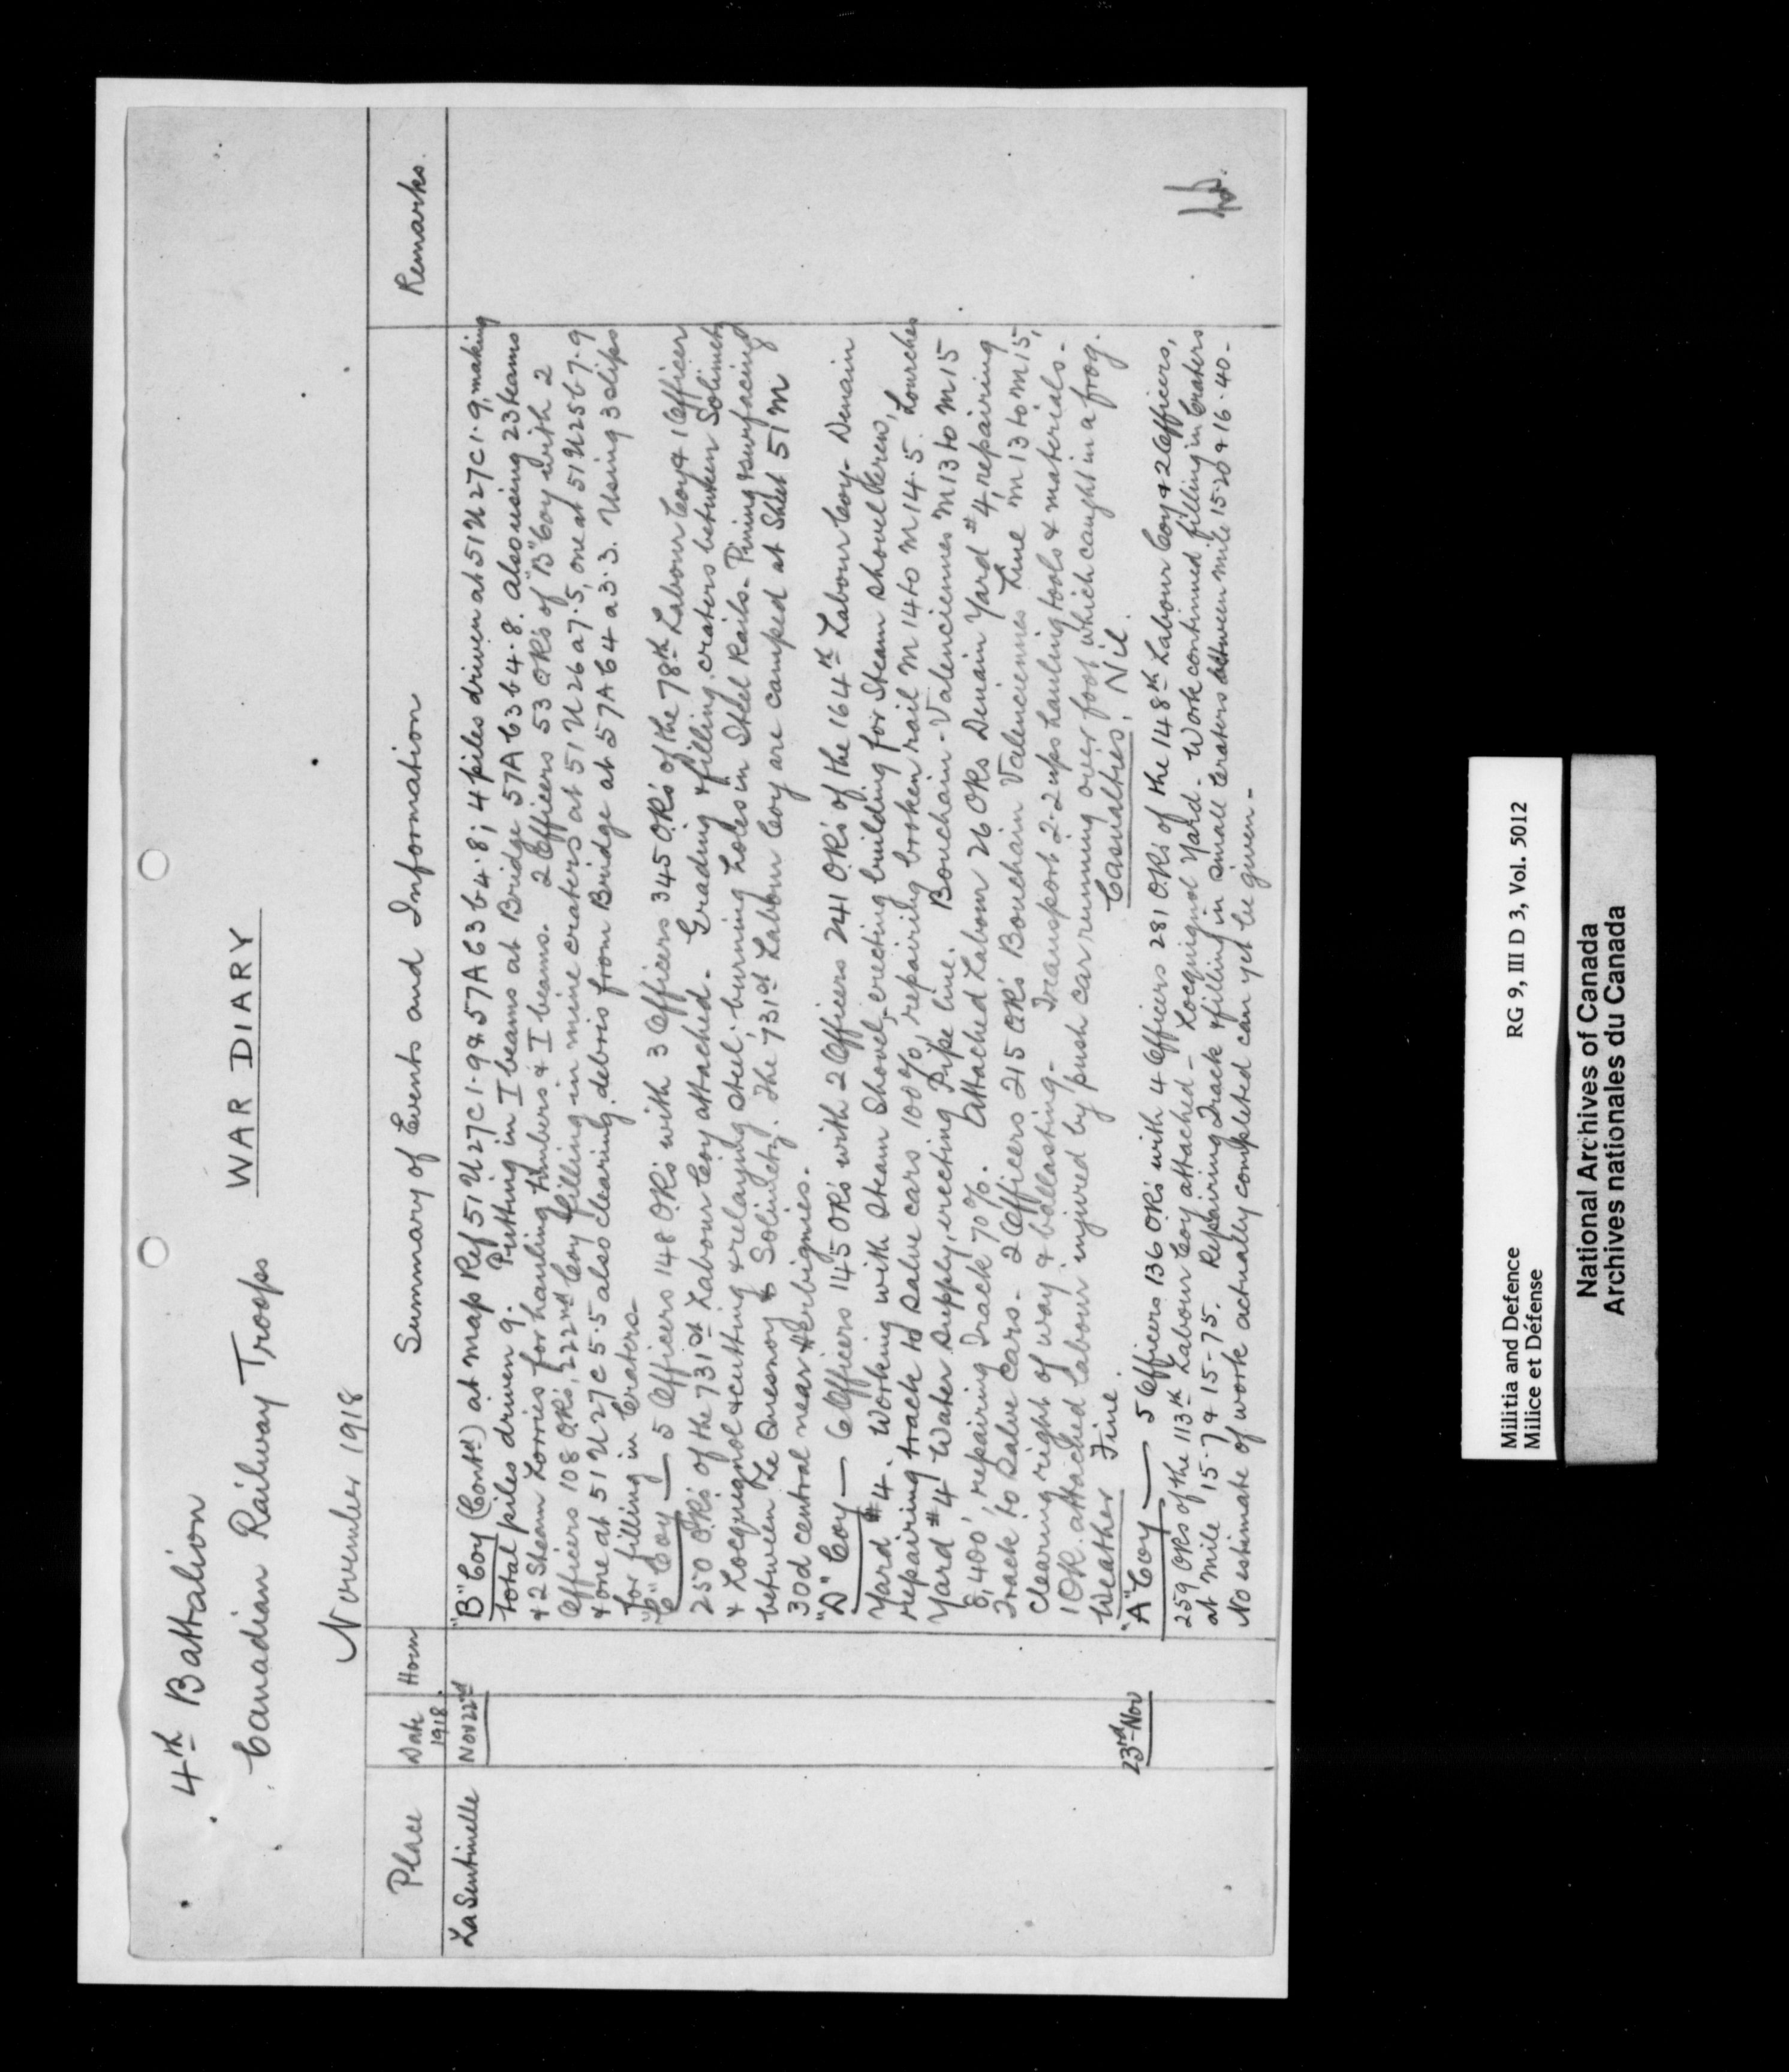 4th Battalion
Canadian Railway Troops WAR DIARY
November 1918
Place Date 1918. Hour Summary of Events and Information Remarks.
La Sentinelle Nov 22nd "B" Coy (Contd) at map Ref 51 U 27 C 1.9 & 57 A 63 b 4.8; 4 piles driven at 51 U 27 C 1.9, making
total piles driven 9. Putting in I beams at Bridge 57A 63 b 4.8. Also using 23 teams
& 2 Steam Lorries for hauling timbers & I beams. 2 Officers 53 OR's of "B" Coy with 2
Officers 108 O.R's, 222nd Coy filling in mine craters at 51 U 26 a 7.5, one at 51 U 25 b 7.9
& one at 51 U 27 c 5.5 also clearing debris from Bridge at 57A 64 a 3.3. Using 3 slips
for filling in Craters.
"C" Coy — 5 Officers 148 O.R's with 3 Officers 345 O.R's of the 78th Labour Coy & 1 Officer
250 O.R's of the 731st Labour Coy attached. Grading & filling craters between Solimetz
& Locquignol & cutting & relaying steel; burning holes in Steel Rails. Lining & surfacing
between Le Quesnoy & Solimetz. The 731st Labour Coy are camped at Sheet 51 M
30d central near Herbignies.
"D" Coy — 6 Officers 145 OR's with 2 Officers 241 O.R's of the 164th Labour Coy - Denain
Yard #4. Working with Steam Shovel, erecting building for Steam Shovel Crew,
repairing track to Salve cars 100%, repairing broken rail M 14 to M 14.5. Lourches
Yard #4 Water Supply, erecting Pipe line. Bouchain - Valenciennes M 13 to M 15
8,400', repairing Track 70%. Attached Labour 26 ORs Denain Yard #4, repairing
Track to Salve Cars. 2 Officers 215 OR's Bouchain Valenciennes Line M 13 to M 15,
Clearing right of way & ballasting. Transport 2-2 ups hauling tools & materials.
1 OR. attached Labour injured by push car running over foot which caught in a frog.
Weather Fine. Casualties, Nil.
23rd Nov "A" Coy — 5 Officers 136 OR's with 4 Officers 281 O.R's of the 148th Labour Coy & 2 Officers,
259 OR's of the 113th Labour Coy attached - Locquignol Yard. Work continued filling in Craters
at mile 15.7 & 15.75. Repairing Track & filling in small Craters between mile 15.20 & 16.40 -
No estimate of work actually completed can yet be given -
Militia and Defence RG 9, III D 3, Vol. 5012
Milice et Défense
National Archives of Canada
Archives nationales du Canada